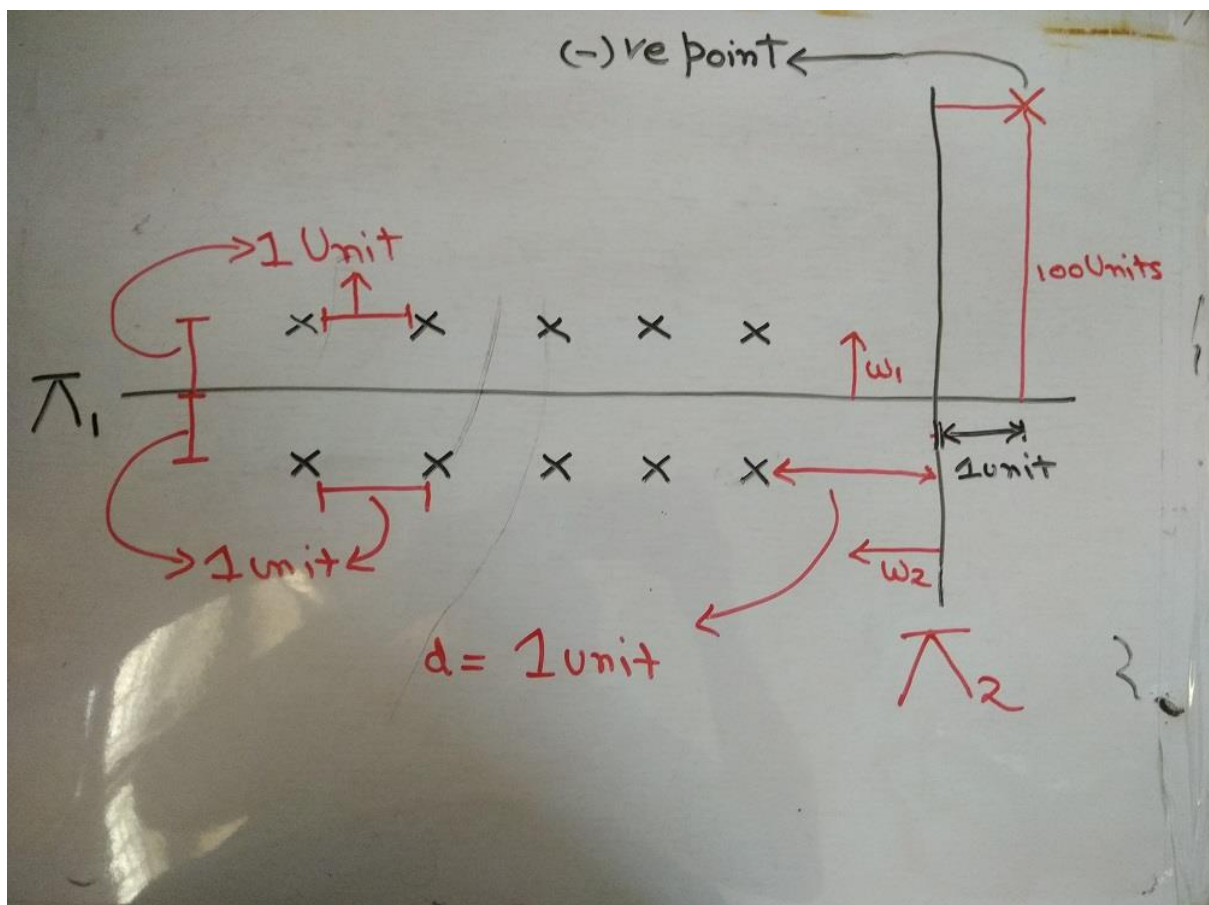 (-)ve point
1 Unit
100Units
π1
w1
1unit
1unit
w2
d = 1unit
π2